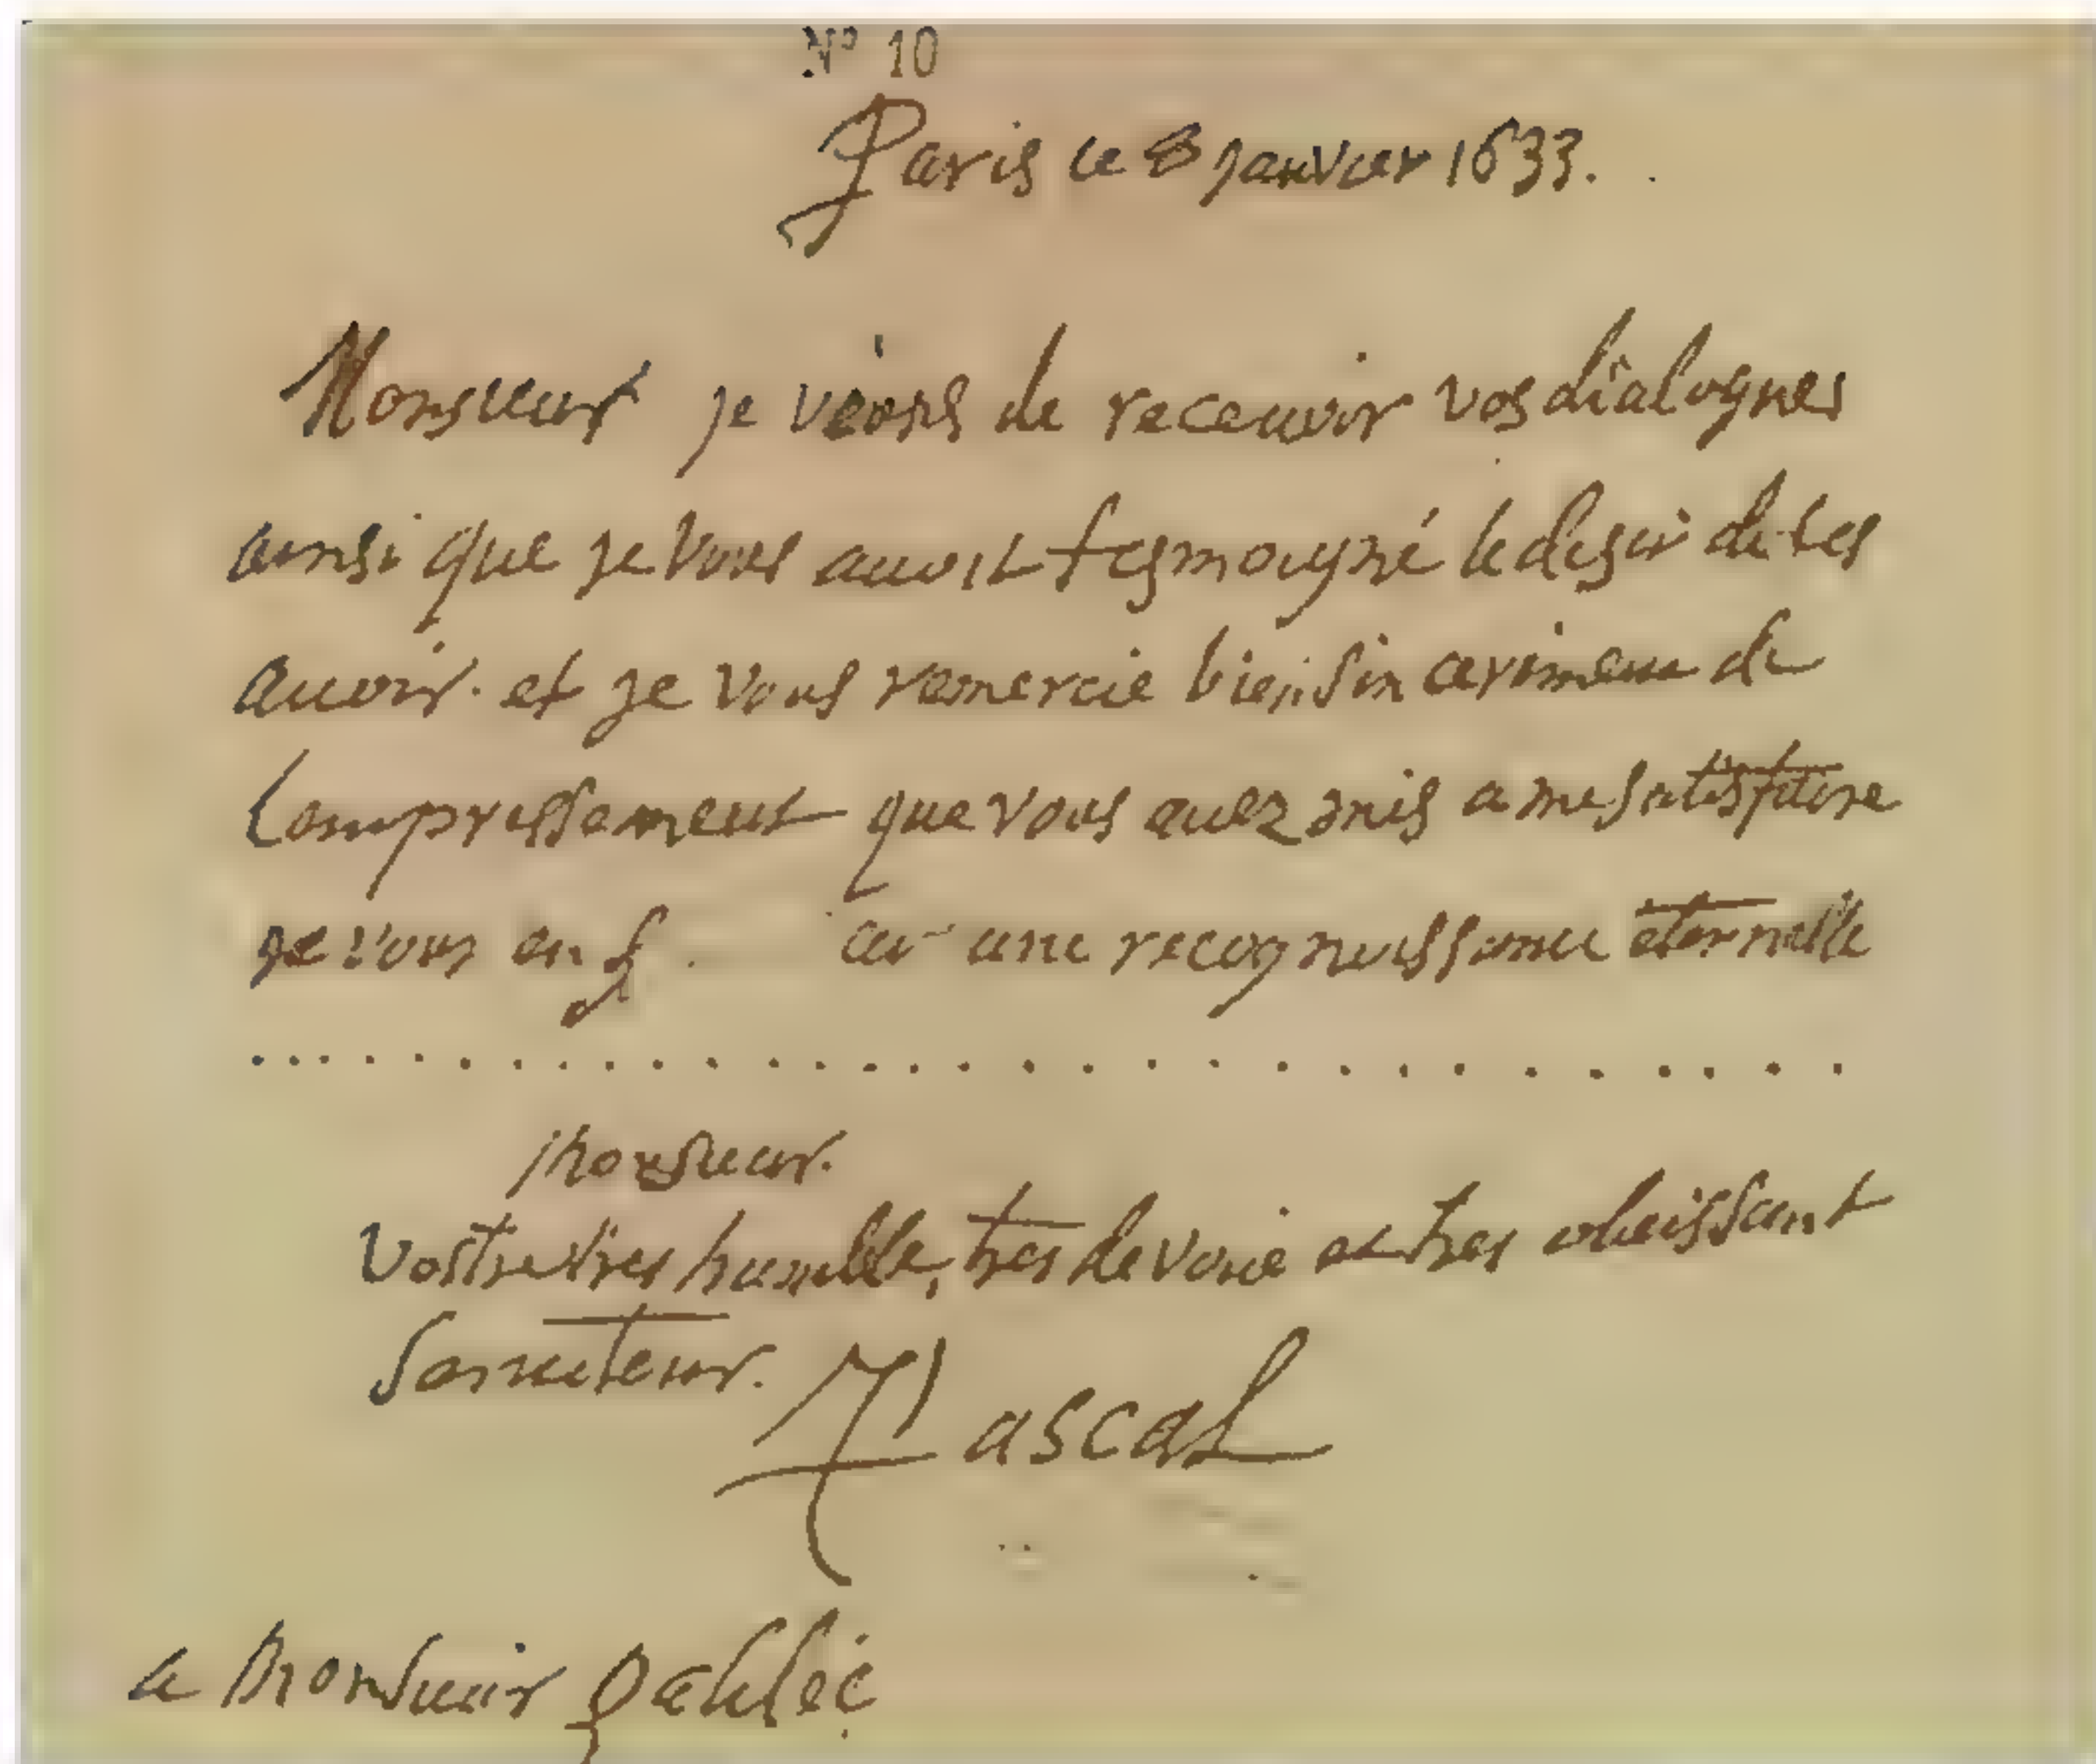 Nº 10
Paris le 8 janvier 1633.
Monsieur je viens de recevoir vos dialogues
ainsi que je vous avoit tesmoigné le desir de les
avoir. et je vous remercie bien sincerement de
l'empressement que vous avez mis a me satisfaire
je vous en une recognoissance éternelle
. . . . . . . . . . . . . . . . . . . . . . . . . . . . . .
Monsieur.
Vostre tres humble, tres devoué et tres obeissant
Serviteur. Pascal
a Monsieur Galilée